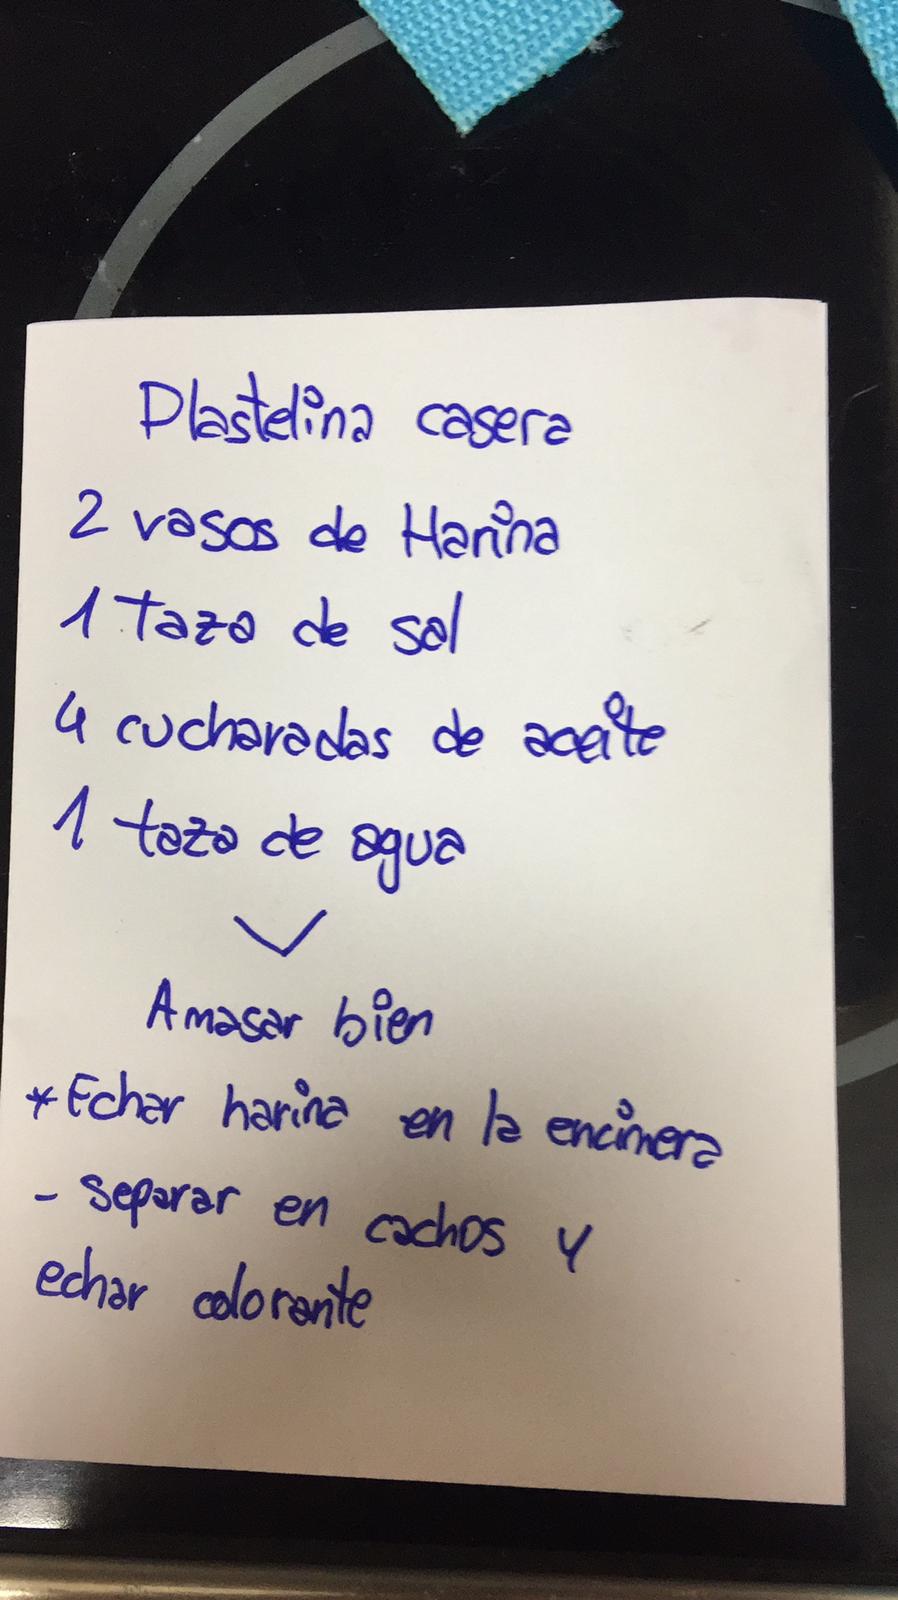 Plastelina casera
2 vasos de Harina
1 taza de sal
4 cucharadas de aceite
1 taza de agua
Amasar bien
* Echar harina en la encimera
- separar en cachos y
echar colorante